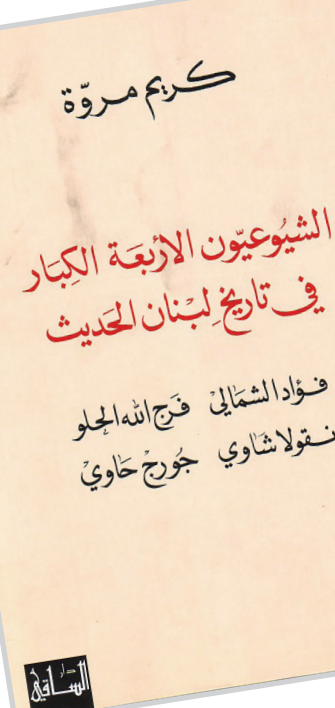 كريم مروّة
الشيُوعيّون الأربعَة الكِبَار
في تاريخ لِبْنان الحَديث
فؤاد الشمَالي فَرَج الله الحلو
نقولا شاوي جُورجْ حَاوي
دار
الساقي